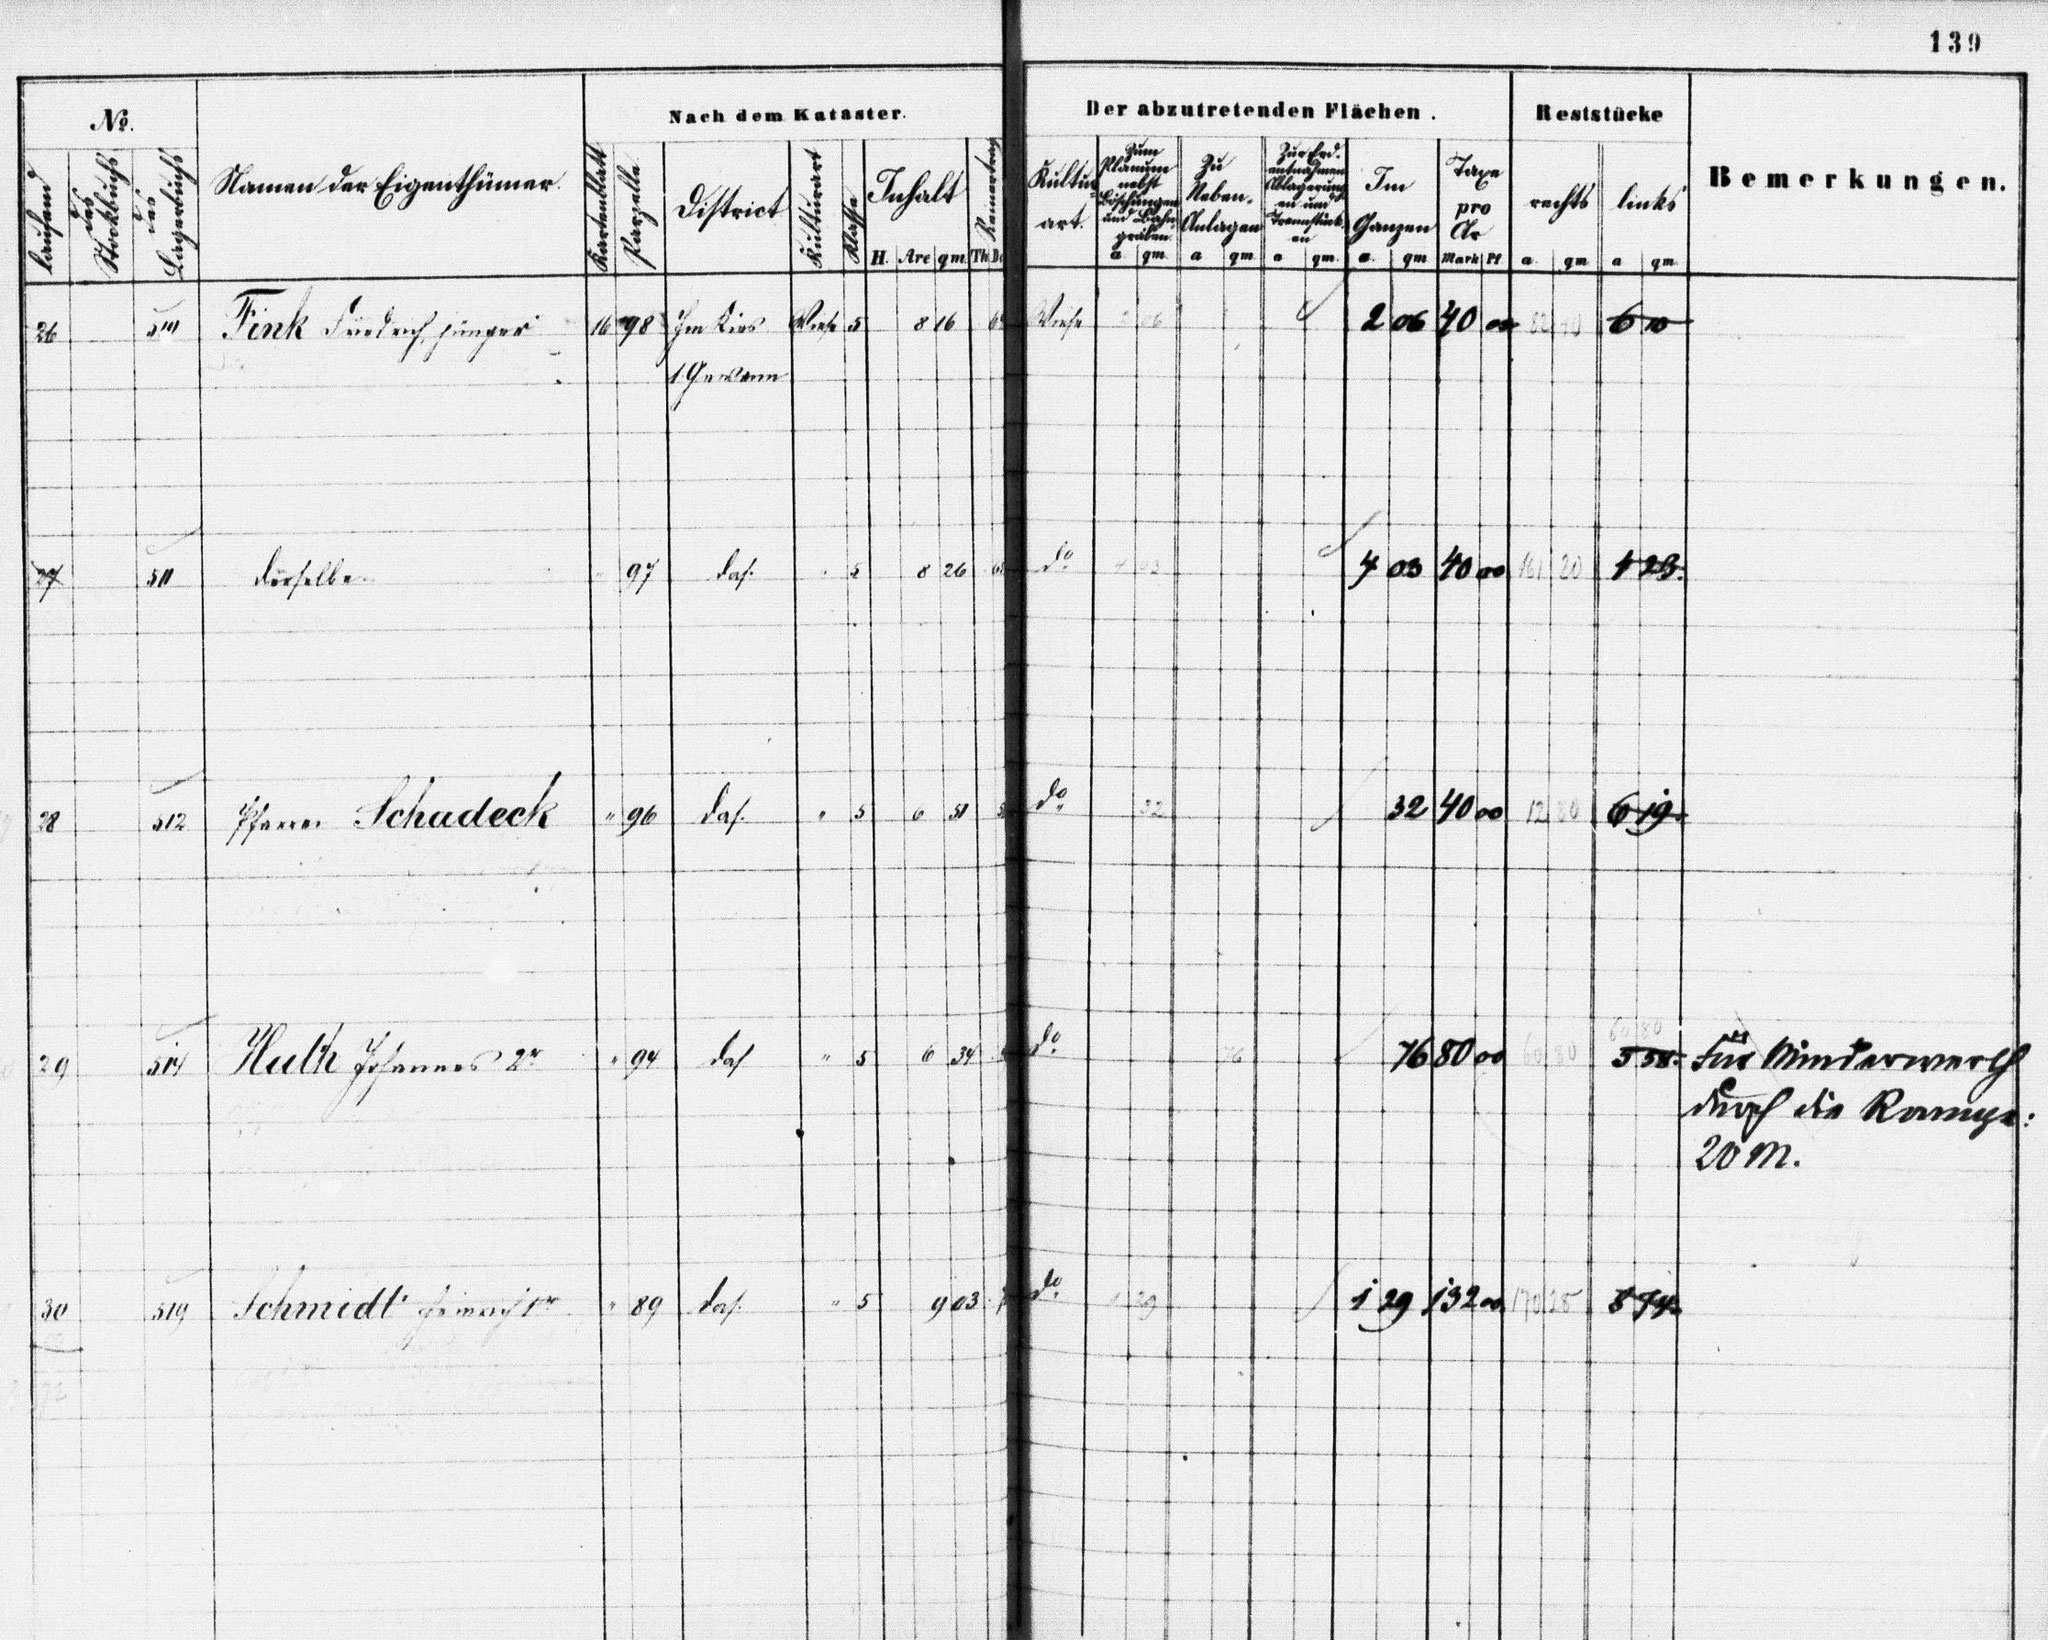 139
No.
Nach dem Kataster.
Der abzutretenden Flächen.
Reststücke
laufend
des Stockbuchs
des Lagerbuchs
Namen der Eigenthümer.
Kartenblatt
Parzelle
District
Kulturart
Klasse
Inhalt
H. Are qm
Reinertrag
Th.
Kultur art.
Zum Planum nebst Böschungen und Bahngräben.
a qm
Zu Neben-Anlagen
a qm
Zur Erdentnahmen Ablagerungen und Trennstücken
a qm
Im Ganzen
a. qm
Taxe pro Ar
Mark Pf.
rechts
a. qm
links
a qm
Bemerkungen.
26 Fink Friedrich, jünger 16 98 Im Kies Wiese 5 8 16 Wiese 2 06 2 06 40 00 6 10
1 Gewann
27 511 derselbe 97 das. " 5 8 26 do 4 03 40 00 161 20 1 23
28 512 Pfarrer Schadeck " 96 das. " 5 6 51 do 32 32 40 00 12 80 6 19
29 514 Huth Johannes 2r " 94 das " 5 6 34 do 76 76 80 00 60 80 5 58 Für Minderwerth
60 80
durch die Rampe:
20 M.
30 519 Schmidt Heinrich 1r " 89 das. " 5 9 03 do 1 29 1 29 132 00 170 28